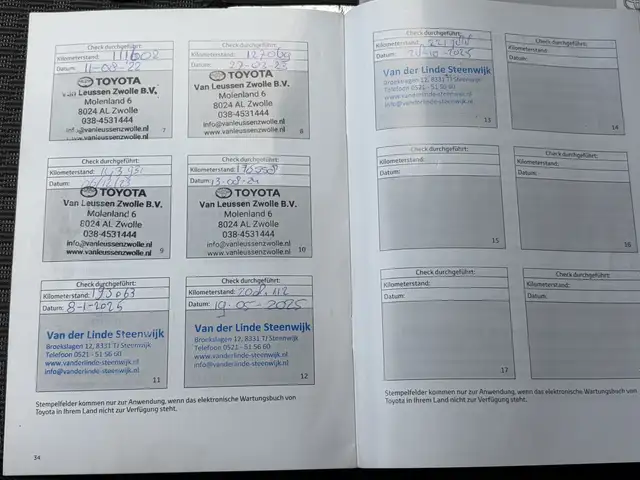 Check durchgeführt:
Kilometerstand: 111602
Datum: 11-08-22
TOYOTA
Van Leussen Zwolle B.V.
Molenland 6
8024 AL Zwolle
038-4531444
info@vanleussenzwolle.nl
www.vanleussenzwolle.nl
7
Check durchgeführt:
Kilometerstand:
Datum: 27-02-23
TOYOTA
Van Leussen Zwolle B.V.
Molenland 6
8024 AL Zwolle
038-4531444
info@vanleussenzwolle.nl
www.vanleussenzwolle.nl
8
Check durchgeführt:
Kilometerstand:
Datum:
TOYOTA
Van Leussen Zwolle B.V.
Molenland 6
8024 AL Zwolle
038-4531444
info@vanleussenzwolle.nl
www.vanleussenzwolle.nl
9
Check durchgeführt:
Kilometerstand:
Datum: 13-08-24
TOYOTA
Van Leussen Zwolle B.V.
Molenland 6
8024 AL Zwolle
038-4531444
info@vanleussenzwolle.nl
www.vanleussenzwolle.nl
10
Check durchgeführt:
Kilometerstand: 193063
Datum: 8-1-2025
Van der Linde Steenwijk
Broekslagen 12, 8331 TJ Steenwijk
Telefoon 0521 - 51 56 60
www.vanderlinde-steenwijk.nl
info@vanderlinde-steenwijk.nl
11
Check durchgeführt:
Kilometerstand:
Datum: 19-05-2025
Van der Linde Steenwijk
Broekslagen 12, 8331 TJ Steenwijk
Telefoon 0521 - 51 56 60
www.vanderlinde-steenwijk.nl
info@vanderlinde-steenwijk.nl
12
Stempelfelder kommen nur zur Anwendung, wenn das elektronische Wartungsbuch von
Toyota in Ihrem Land nicht zur Verfügung steht.
34
Check durchgeführt:
Kilometerstand:
Datum:
Van der Linde Steenwijk
Broekslagen 12, 8331 TJ Steenwijk
Telefoon 0521 - 51 56 60
www.vanderlinde-steenwijk.nl
info@vanderlinde-steenwijk.nl
13
Check durchgeführt:
Kilometerstand:
Datum:
14
Check durchgeführt:
Kilometerstand:
Datum:
15
Check durchgeführt:
Kilometerstand:
Datum:
16
Check durchgeführt:
Kilometerstand:
Datum:
17
Check durchgeführt:
Kilometerstand:
Datum:
Stempelfelder kommen nur zur Anwendung, wenn das elektronische Wartungsbuch von
Toyota in Ihrem Land nicht zur Verfügung steht.